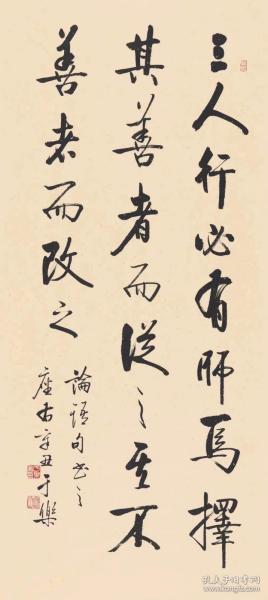 三人行必有師焉擇
其善者而從之其不
善者而改之
論語句書之
座右辛丑于樂
孔夫子旧书网